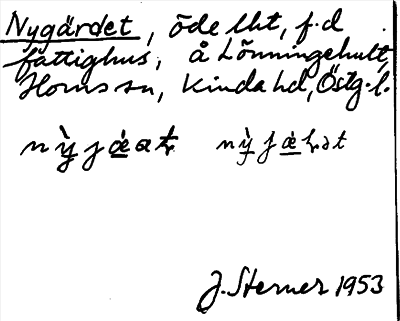 Nygärdet, öde lht, f.d.
fattighus, å Lönningehult,
Horns sn, Kinda hd, Östg. l.
J. Sterner 1953